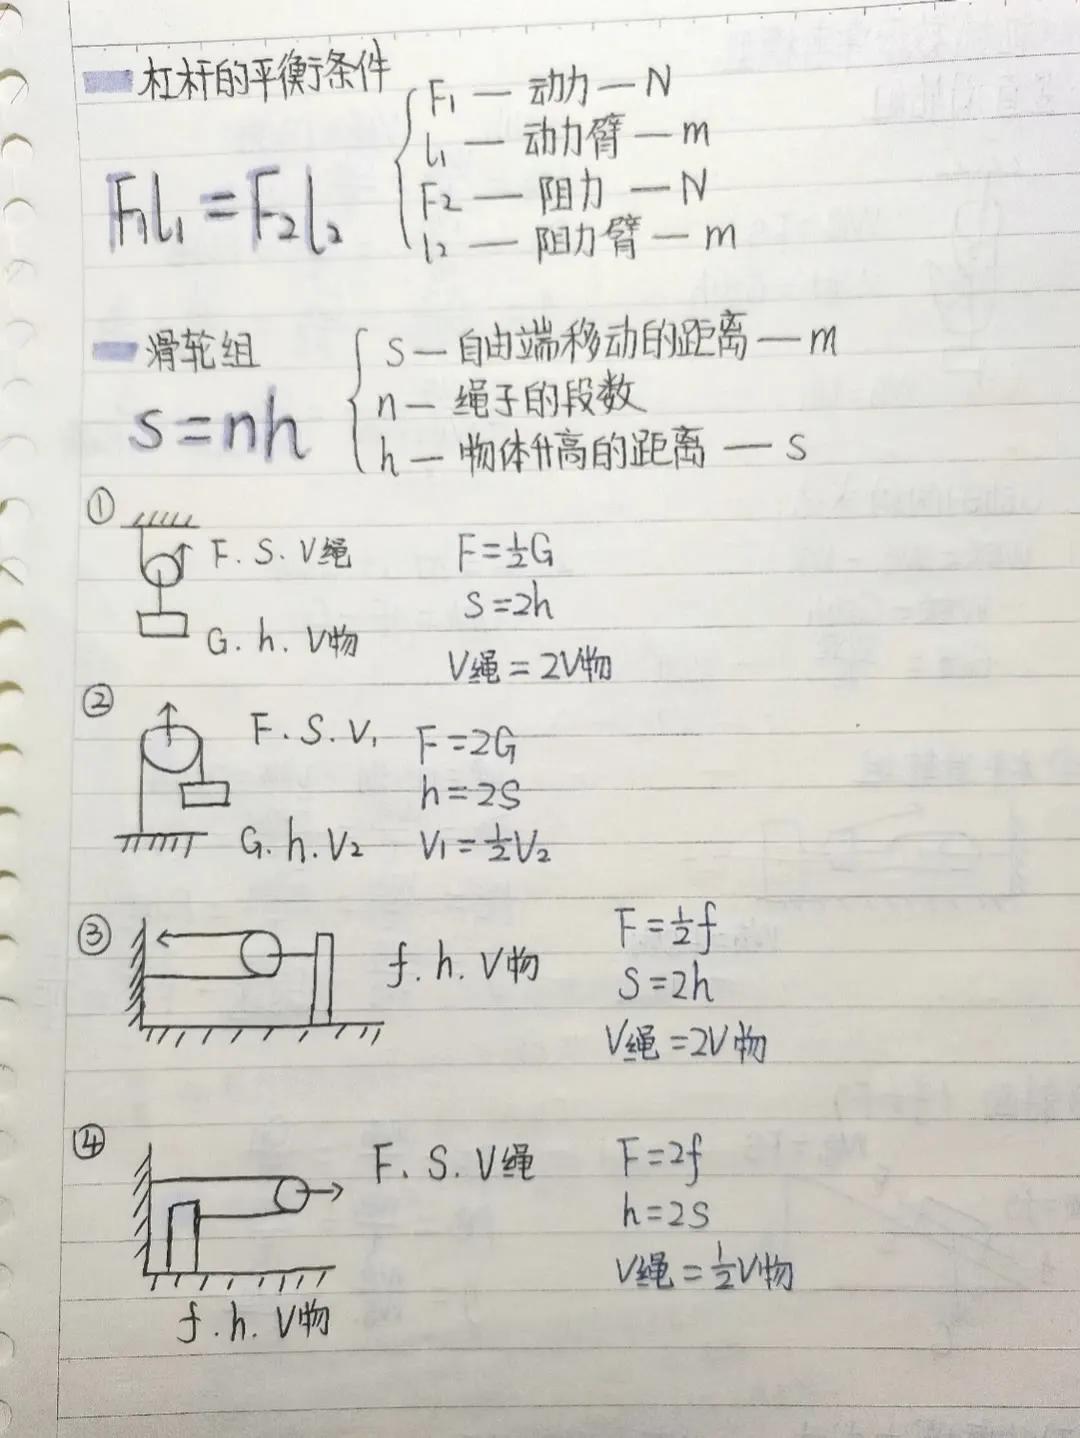 杠杆的平衡条件
F₁l₁=F₂l₂
F₁ — 动力 — N
l₁ — 动力臂 — m
F₂ — 阻力 — N
l₂ — 阻力臂 — m
滑轮组
s=nh
s — 自由端移动的距离 — m
n — 绳子的段数
h — 物体升高的距离 — s
①
F. S. V绳
G. h. V物
F=½G
s=2h
V绳=2V物
②
F. S. V₁
G. h. V₂
F=2G
h=2S
V₁=½V₂
③
f. h. V物
F=½f
S=2h
V绳=2V物
④
F. S. V绳
f. h. V物
F=2f
h=2S
V绳=½V物